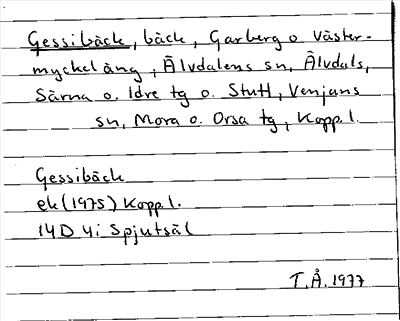 Gessibäck, bäck, Garberg o. Väster-
myckeläng, Älvdalens sn, Älvdals,
Särna o. Idre tg o. Stutt, Venjans
sn, Mora o. Orsa tg, Kopp. l.
Gessibäck
ek (1975) Kopp. l.
14D 4i Spjutsäl
T.Å. 1977